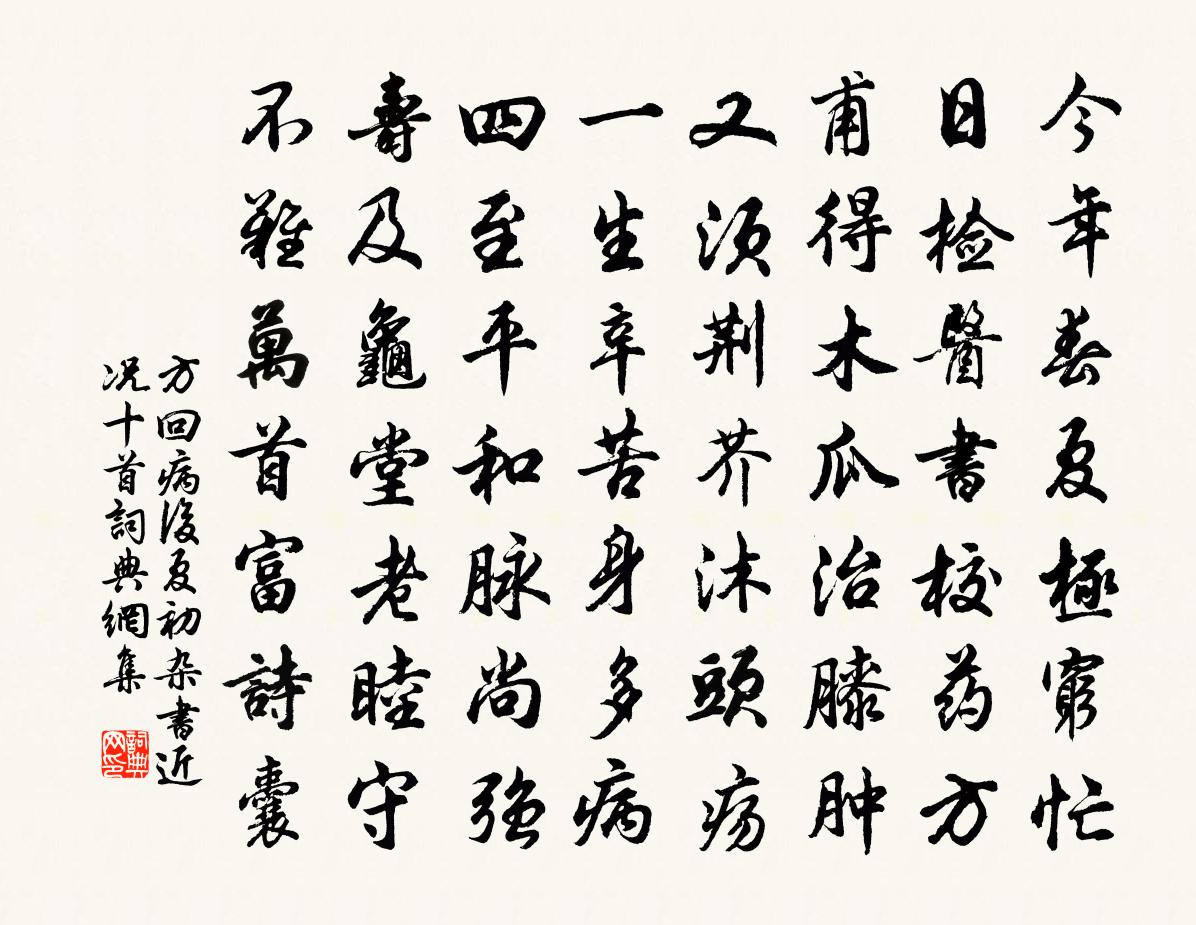 今年春夏極窮忙
日检醫書校药方
甫得木瓜治膝肿
又须荆芥沐頭疡
一生辛苦身多病
四至平和脉尚强
壽及龜堂老睦守
不難萬首富詩囊
方回病後夏初杂書近
况十首詞典網集
詞典网印